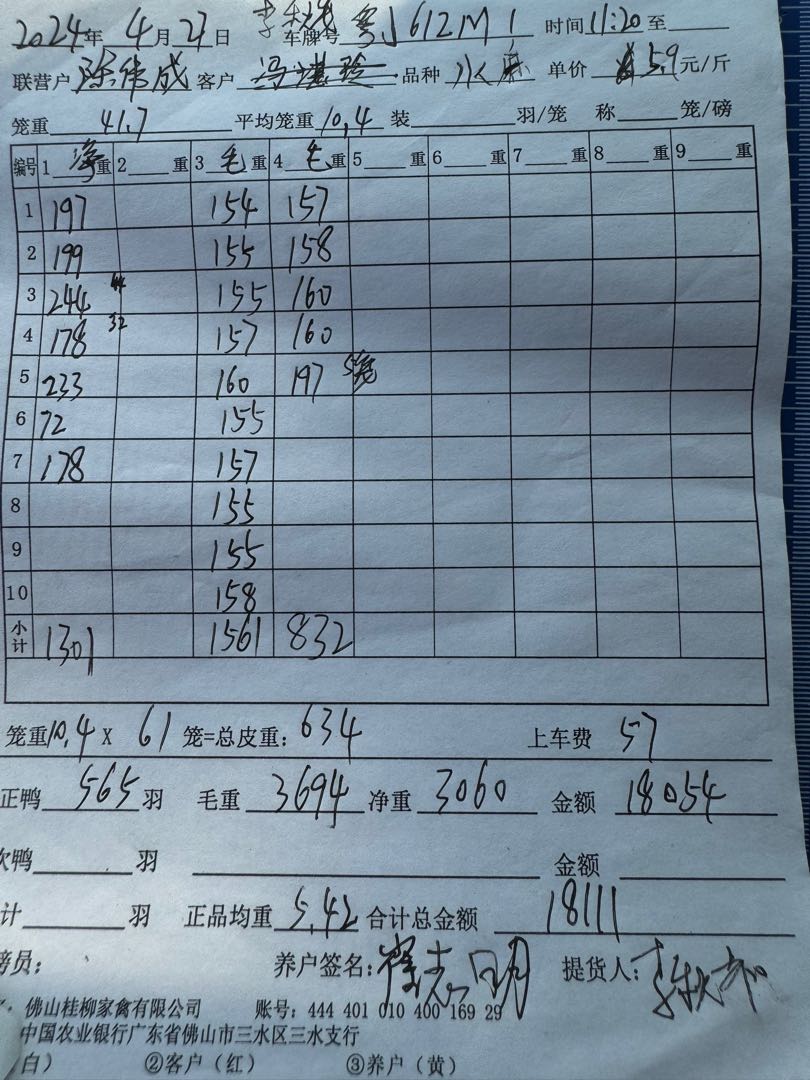 2024年 4月27日 车牌号 粤J612M1 时间 11:20至
联营户 陈伟成 客户 冯堪珍 品种 水人麻 单价 5.9元/斤
笼重 41.7 平均笼重 10.4 装 羽/笼 称 笼/磅
编号 1 净重 2 重 3 毛重 4 毛重 5 重 6 重 7 重 8 重 9 重
1 197 154 157
2 199 155 158
3 244 44 155 160
4 178 32 157 160
5 233 160 197 5笼
6 72 155
7 178 157
8 155
9 155
10 158
小计 1301 1561 832
笼重10.4 X 61 笼=总皮重: 634 上车费 57
正鸭 565 羽 毛重 3694 净重 3060 金额 18054
次鸭 羽 金额
计 羽 正品均重 5.42 合计总金额 18111
磅员: 养户签名: 志明 提货人: 李秋
佛山桂柳家禽有限公司 账号: 444 401 010 400 169 29
中国农业银行广东省佛山市三水区三水支行
白） ②客户（红） ③养户（黄）